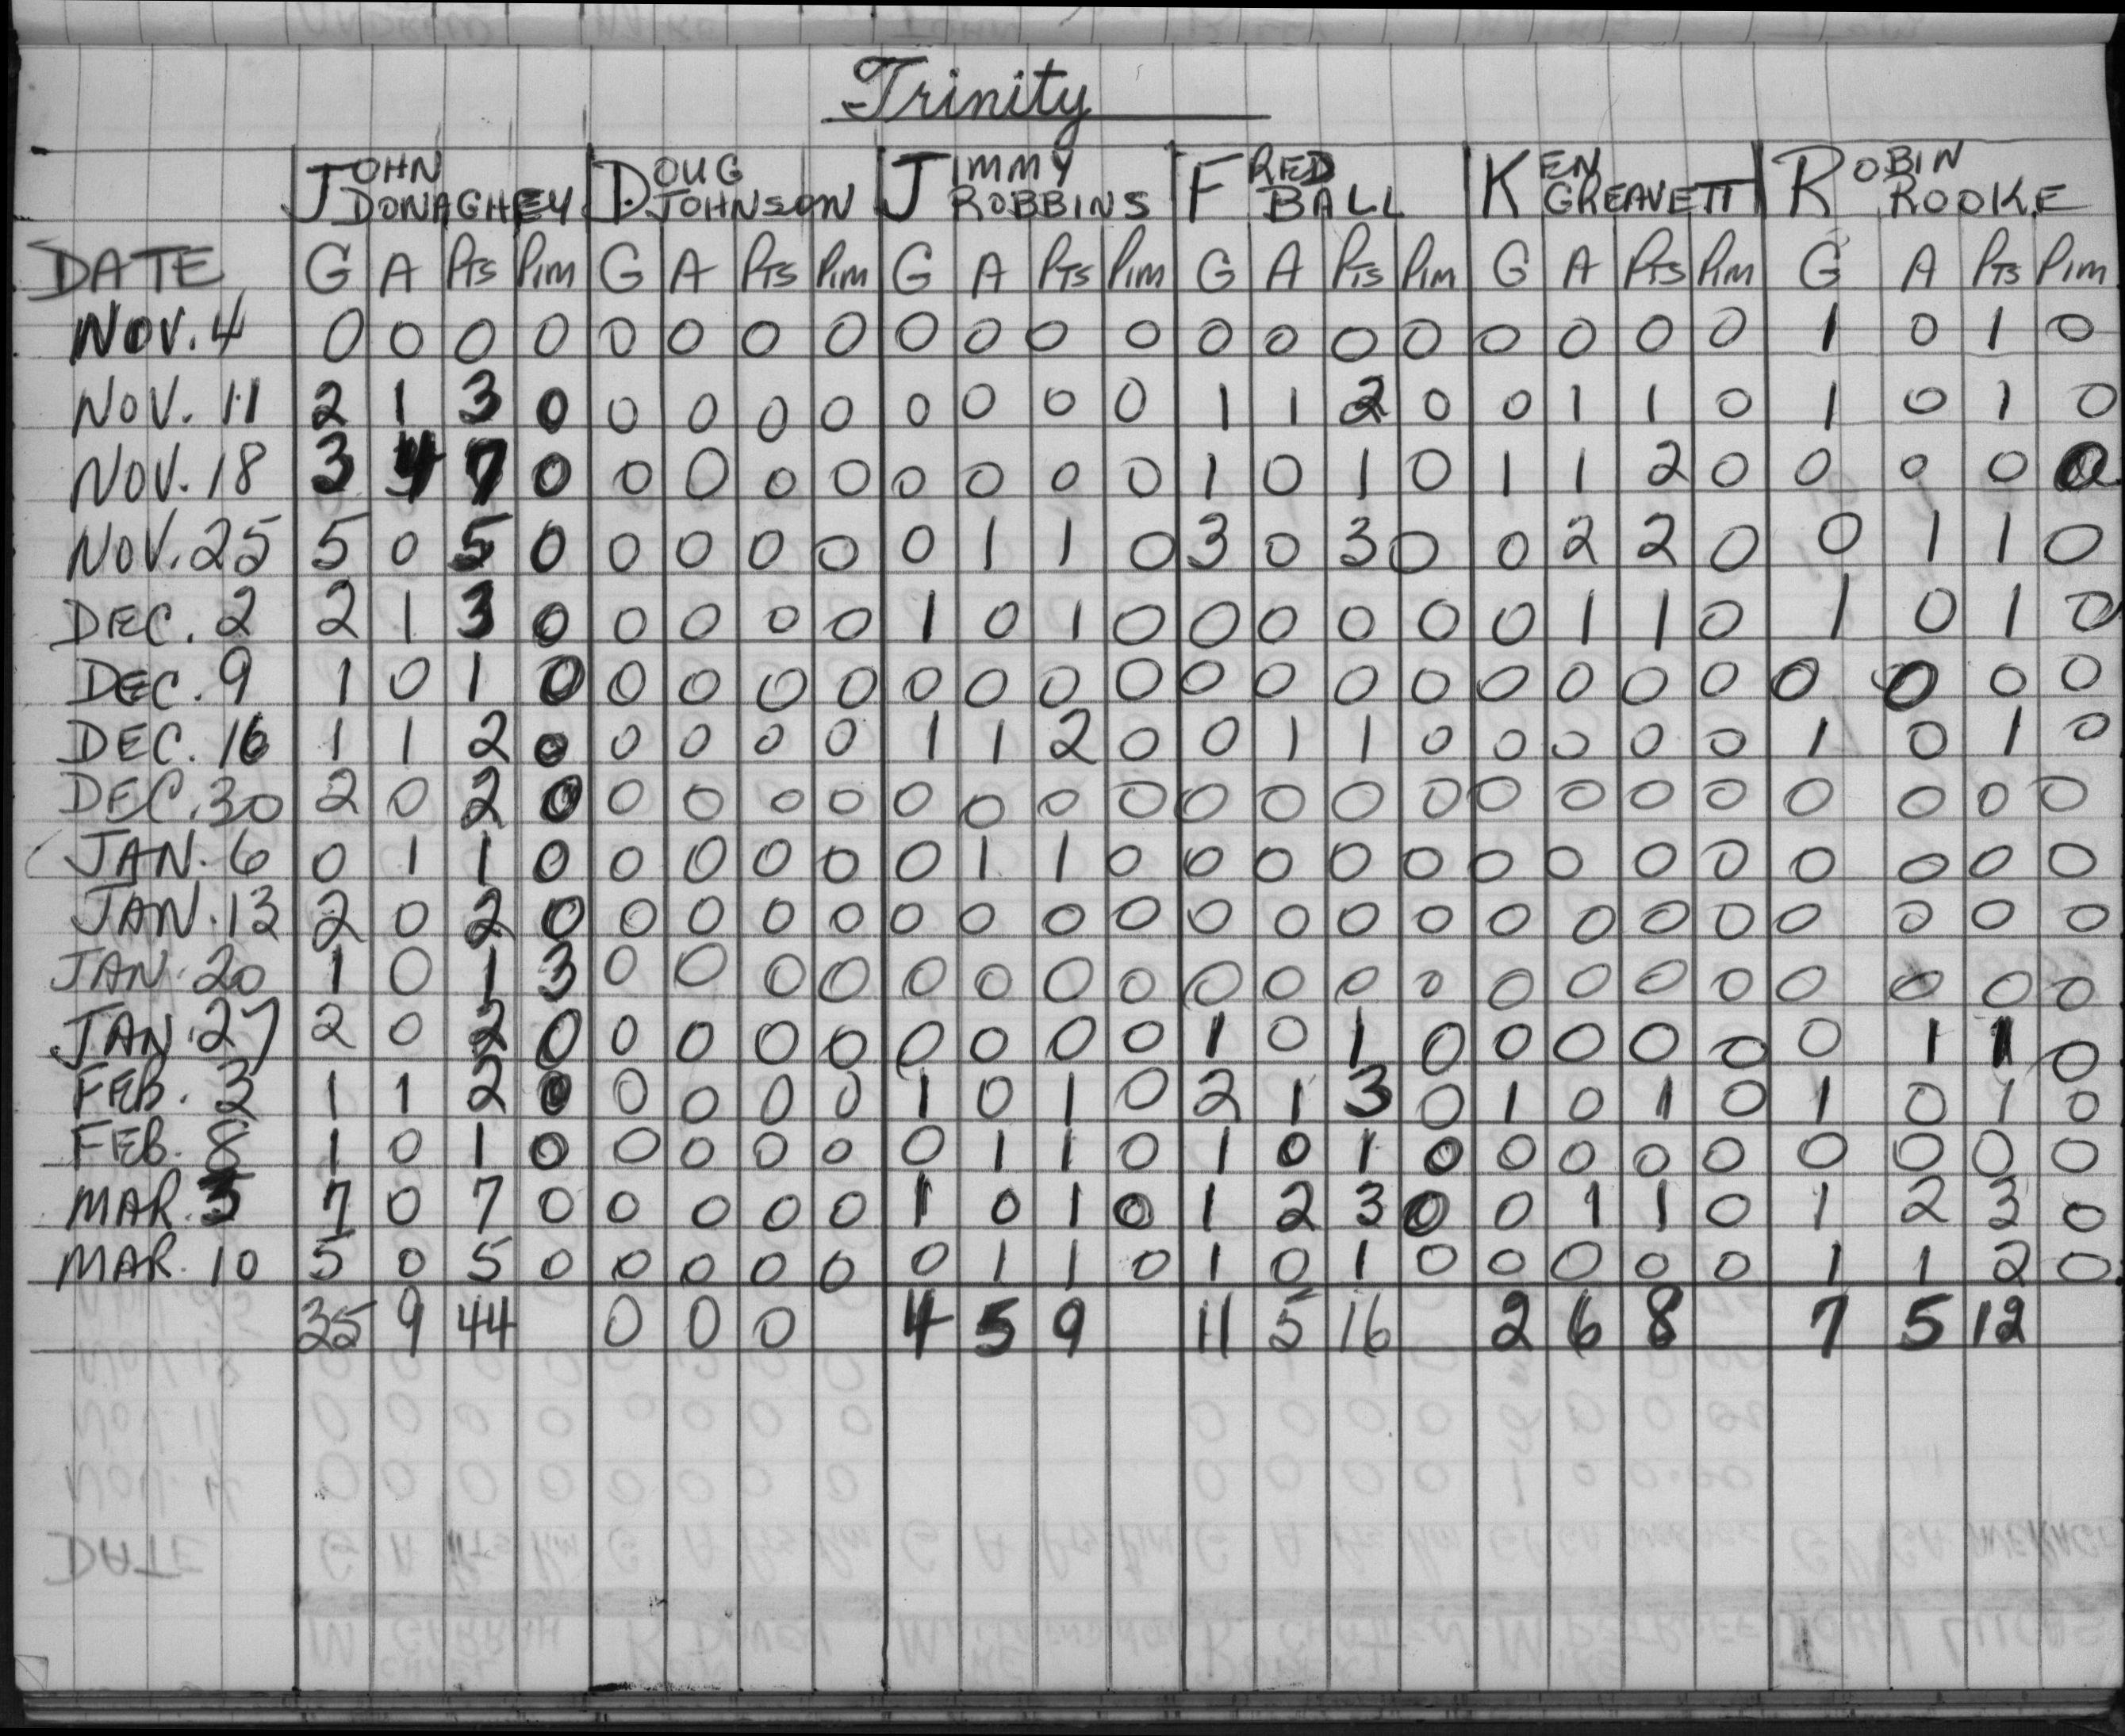 Trinity
JOHN DONAGHEY D.OUG JOHNSON JIMMY ROBBINS FRED BALL KEN GREAVETT ROBIN ROOKE
DATE G A PTS PIM G A PTS PIM G A PTS PIM G A PTS PIM G A PTS PIM G A PTS PIM
NOV. 4 0 0 0 0 0 0 0 0 0 0 0 0 0 0 0 0 0 0 0 0 1 0 1 0
NOV. 11 2 1 3 0 0 0 0 0 0 0 0 0 1 1 2 0 0 1 1 0 1 0 1 0
NOV. 18 3 4 7 0 0 0 0 0 0 0 0 0 1 0 1 0 1 1 2 0 0 0 0 0
NOV. 25 5 0 5 0 0 0 0 0 0 1 1 0 3 0 3 0 0 2 2 0 0 1 1 0
DEC. 2 2 1 3 0 0 0 0 0 1 0 1 0 0 0 0 0 0 1 1 0 1 0 1 0
DEC. 9 1 0 1 0 0 0 0 0 0 0 0 0 0 0 0 0 0 0 0 0 0 0 0 0
DEC. 16 1 1 2 0 0 0 0 0 1 1 2 0 0 1 1 0 0 0 0 0 1 0 1 0
DEC. 30 2 0 2 0 0 0 0 0 0 0 0 0 0 0 0 0 0 0 0 0 0 0 0 0
JAN. 6 0 1 1 0 0 0 0 0 0 1 1 0 0 0 0 0 0 0 0 0 0 0 0 0
JAN. 13 2 0 2 0 0 0 0 0 0 0 0 0 0 0 0 0 0 0 0 0 0 0 0 0
JAN. 20 1 0 1 3 0 0 0 0 0 0 0 0 0 0 0 0 0 0 0 0 0 0 0 0
JAN. 27 2 0 2 0 0 0 0 0 0 0 0 0 1 0 1 0 0 0 0 0 0 1 1 0
FEB. 3 1 1 2 0 0 0 0 0 1 0 1 0 2 1 3 0 1 0 1 0 1 0 1 0
FEB. 8 1 0 1 0 0 0 0 0 0 1 1 0 1 0 1 0 0 0 0 0 0 0 0 0
MAR. 3 7 0 7 0 0 0 0 0 1 0 1 0 1 2 3 0 0 1 1 0 1 2 3 0
MAR. 10 5 0 5 0 0 0 0 0 0 1 1 0 1 0 1 0 0 0 0 0 1 1 2 0
35 9 44 0 0 0 4 5 9 11 5 16 2 6 8 7 5 12